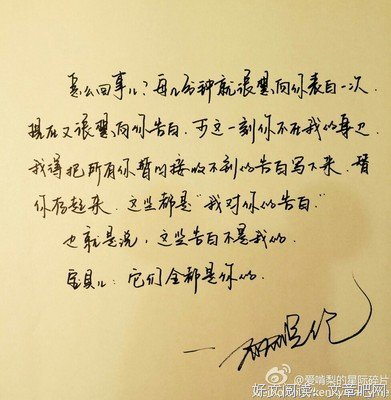 怎么回事儿？每几分钟就很想向你表白一次.
现在又很想向你告白. 可这一刻你不在我的身边
我得把所有你暂时接收不到的告白写下来. 替
你存起来. 这些都是“我对你的告白”
也就是说，这些告白不是我的.
宝贝儿：它们全都是你的.
@爱啃梨的星际碎片
好文阅读－文章吧网